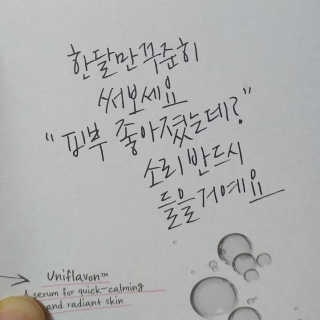 한달만 꾸준히
써보세요
"피부 좋아졌는데?"
소리 반드시
들을거예요
Uniflavon™
A serum for quick-calming
and radiant skin